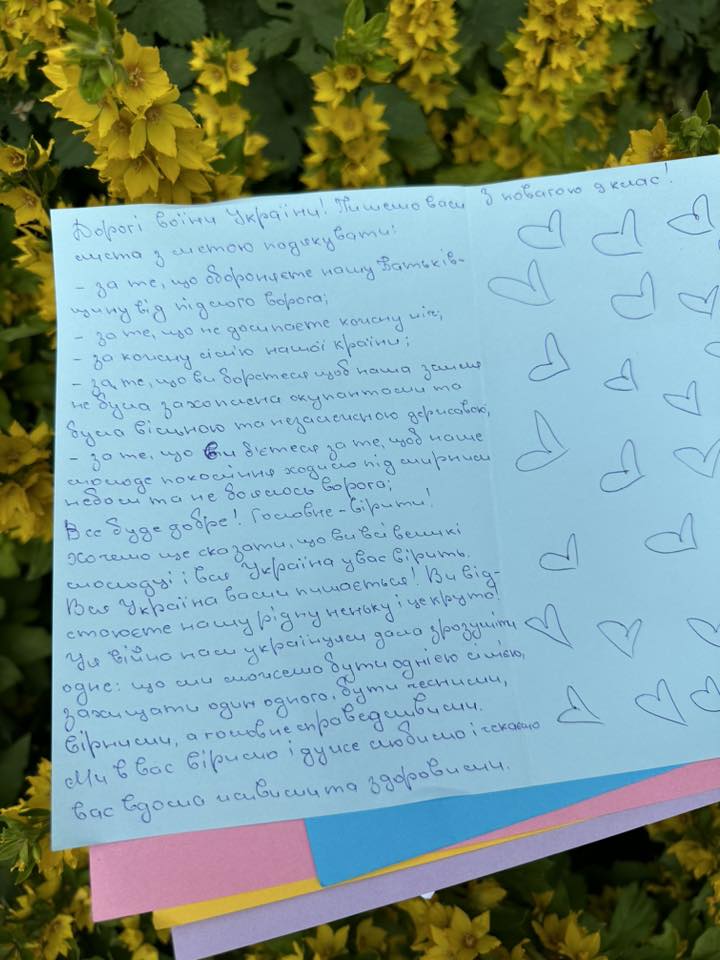 Дорогі воїни України! Пишемо вам
листа з метою подякувати:
- за те, що обороняєте нашу Батьків-
щину від підлого ворога;
- за те, що не досипаєте кожну ніч;
- за кожну сімю нашої країни;
- за те, що ви боретеся щоб наша земля
не була захоплена окупантами та
була вільною та незалежною державою;
- за те, що ви бʼєтеся за те, щоб наше
молоде покоління ходило під мирним
небом та не боялось ворога;
Все буде добре! Головне - вірити!
Хочемо ще сказати, що ви всі великі
молодці і вся Україна у вас вірить.
Вся Україна вами пишається! Ви від-
стоюєте нашу рідну неньку і це круто!
Ця війна нам українцям дала зрозуміти
одне: що ми можемо бути однією сімʼєю,
захищати один одного, бути чесними,
вірними, а головне справедливими.
Ми в вас віримо і дуже любимо і чекаємо
вас вдома живими та здоровими.
З повагою 9 клас!